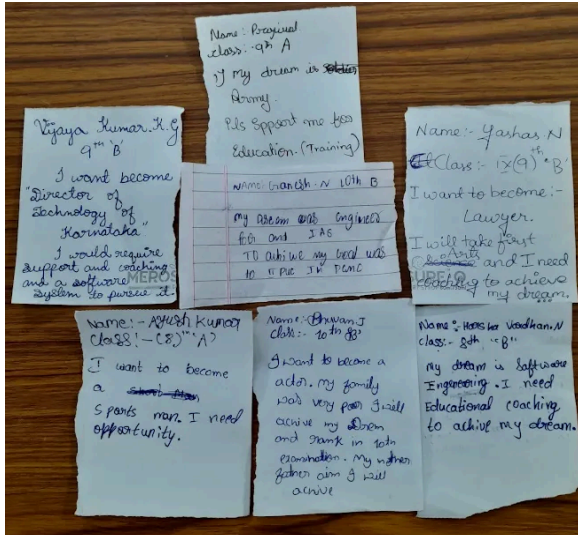 Name: Prajwal
Class: 9th A
my dream is
Army.
Pls Spport me for
Education. (Training)
Vijaya Kumar. K. G
9th 'B'
I want become
"Director of
Technology of
Karnataka"
I would require
support and coaching
and a software
system to pursue it.
NAME: Ganesh. N 10th B
my dream was engineer
for and IAS
TO achive my Goal was
to
Name:- Yashas. N
Class:- ix(9)th "B"
I want to become:-
Lawyer.
I will take first
Arts and I need
coaching to achieve
my dream.
Name:- Ayush Kumar
Class:- (8)th 'A'
I want to become
a
Sports man. I need
opportunity.
Name:- Bhuvan. J
Class:- 10th 'B'
I want to become a
actor. my family
was very poor I will
achive my Drem
and rank in 10th
examination. My mother
father aim I will
achive
Name:- Harsha Vardhan. N
Class:- 8th "B"
My dream is Software
Engineering. I need
Educational coaching
to achive my dream.